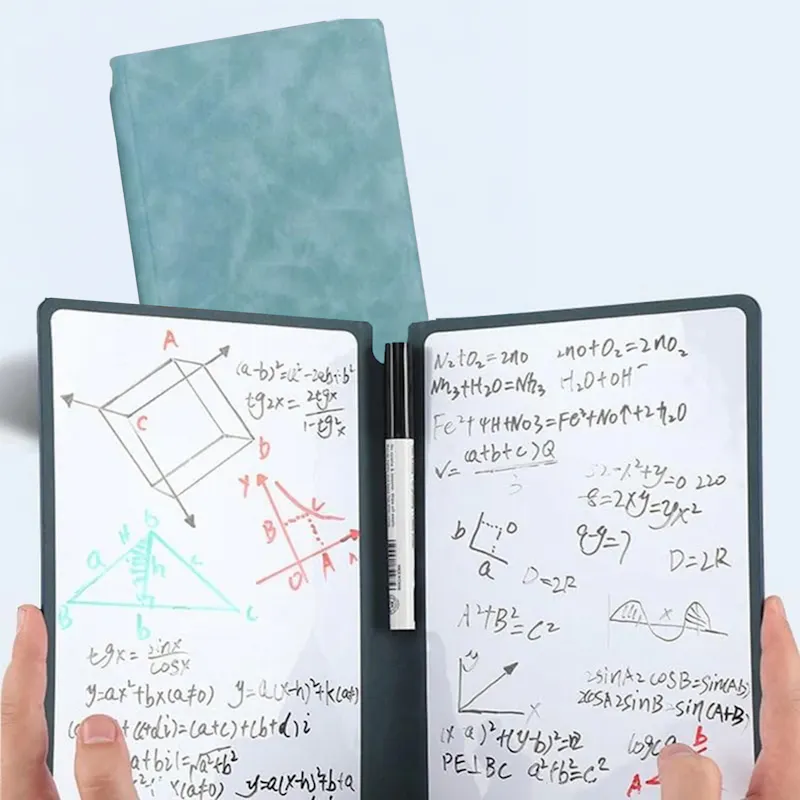 A
C
b
(a-b)²=a²-2ab+b²
tg2x = 2tgx
1-tg²x
y
B
O
A
x
a
b
c
h
B
b
C
tgx = sinx
cosx
y=ax²+bx(a≠0) y=a(x-h)²+k(a≠
+(c+di)=(a+c)+(b+d)i
a+bi|=√a²+b²
x(a≠0) y=a(x-h)²+b+a
N₂+O₂=2no 2no+O₂=2nO₂
Nh₃+H₂O=Nh₃ H₂O+OH⁻
Fe²+4H+NO3=Fe³+No↑+2h₂O
V= (a+b+c)Q
3
52-x²+y=0 220
-8=2xy=yx²
qy=7
b
o
a
D=2R
D=2R
A²+B²=C²
x
y
x
2sinA2cosB=sin(Ab)
2cosA2sinB=sin(A+B)
(x a)²+(y-b)²=
logca
b
PE⊥BC a²+b²=c²
A